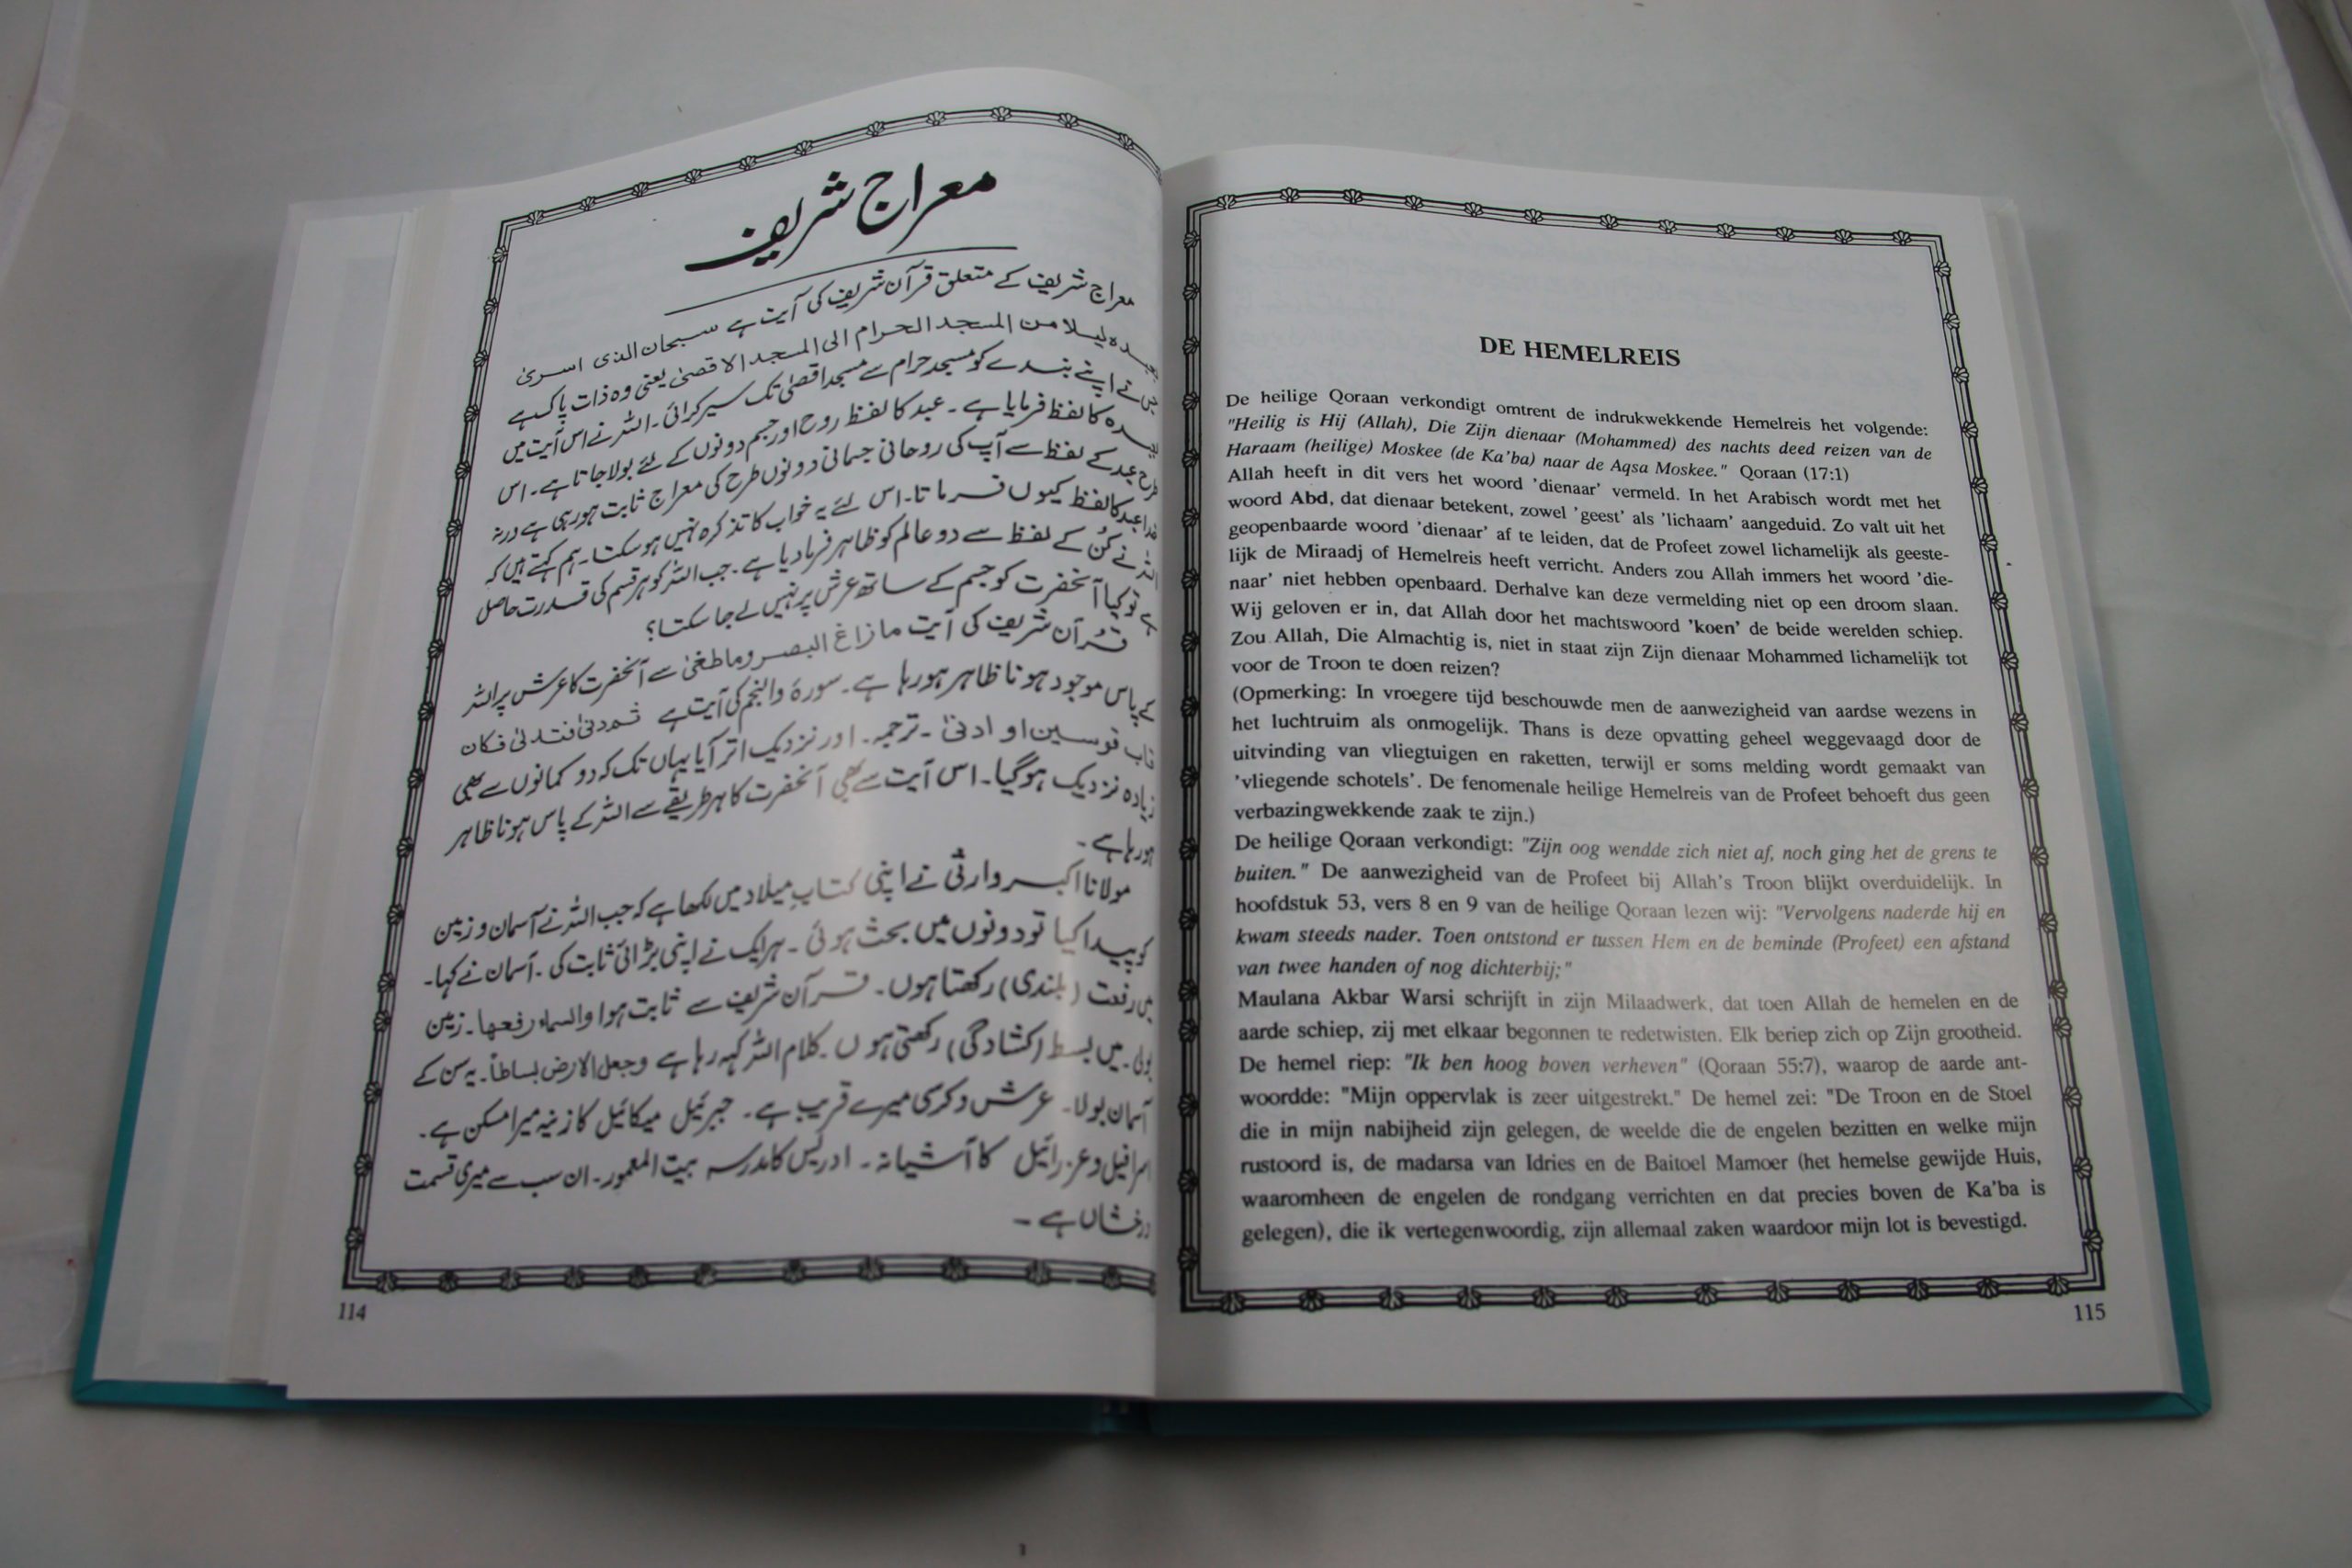 معراج شریف
معراج شریف کے متعلق قرآن شریف کی آیت ہے سبحان الذی اسریٰ
بعبدہ لیلا من المسجد الحرام الی المسجد الاقصیٰ یعنی وہ ذات پاک ہے
جس نے اپنے بندے کو مسجد حرام سے مسجد اقصٰی تک سیر کرائی۔ اللہ نے اس آیت میں
بعبدہ کا لفظ فرمایا ہے۔ عبد کا لفظ روح اور جسم دونوں کے لئے بولا جاتا ہے۔ اس
طرح عبد کے لفظ سے آپ کی روحانی جسمانی دونوں طرح کی معراج ثابت ہو رہی ہے ورنہ
خدا عبد کا لفظ کیوں فرماتا۔ اس لئے یہ خواب کا تذکرہ نہیں ہو سکتا۔ ہم کہتے ہیں کہ
اللہ نے کُن کے لفظ سے دو عالم کو ظاہر فرما دیا ہے۔ جب اللہ کو ہر قسم کی قدرت حاصل
ہے تو کیا آنحضرت کو جسم کے ساتھ عرش پر نہیں لے جا سکتا؟
قرآن شریف کی آیت مازاغ البصر وماطغیٰ سے آنحضرت کا عرش پر اللہ
کے پاس موجود ہونا ظاہر ہو رہا ہے۔ سورۂ والنجم کی آیت ہے ثم دنیٰ فتدلیٰ فکان
قاب قوسین او ادنیٰ ۔ ترجمہ۔ اور نزدیک اتر آیا یہاں تک کہ دو کمانوں سے بھی
زیادہ نزدیک ہو گیا۔ اس آیت سے بھی آنحضرت کا ہر طریقے سے اللہ کے پاس ہونا ظاہر
ہو رہا ہے۔
مولانا اکبر وارثی نے اپنی کتاب میلاد میں لکھا ہے کہ جب اللہ نے آسمان و زمین
کو پیدا کیا تو دونوں میں بحث ہوئی ۔ ہر ایک نے اپنی بڑائی ثابت کی ۔ آسمان نے کہا۔
میں رفعت (بلندی) رکھتا ہوں۔ قرآن شریف سے ثابت ہوا والسماء رفعہا۔ زمین
بولی۔ میں بسط (کشادگی) رکھتی ہوں۔ کلام اللہ کہہ رہا ہے وجعل الارض بساطاً۔ یہ سن کے
آسمان بولا۔ عرش و کرسی میرے قریب ہے۔ جبرئیل میکائیل کا زینہ میرا مسکن ہے۔
اسرافیل و عزرائیل کا آشیانہ۔ ادریس کا مدرسہ بیت المعمور۔ ان سب سے میری قسمت
درخشاں ہے ۔
114
DE HEMELREIS
De heilige Qoraan verkondigt omtrent de indrukwekkende Hemelreis het volgende:
"Heilig is Hij (Allah), Die Zijn dienaar (Mohammed) des nachts deed reizen van de
Haraam (heilige) Moskee (de Ka'ba) naar de Aqsa Moskee." Qoraan (17:1)
Allah heeft in dit vers het woord 'dienaar' vermeld. In het Arabisch wordt met het
woord Abd, dat dienaar betekent, zowel 'geest' als 'lichaam' aangeduid. Zo valt uit het
geopenbaarde woord 'dienaar' af te leiden, dat de Profeet zowel lichamelijk als geeste-
lijk de Miraadj of Hemelreis heeft verricht. Anders zou Allah immers het woord 'die-
naar' niet hebben openbaard. Derhalve kan deze vermelding niet op een droom slaan.
Wij geloven er in, dat Allah door het machtswoord 'koen' de beide werelden schiep.
Zou Allah, Die Almachtig is, niet in staat zijn Zijn dienaar Mohammed lichamelijk tot
voor de Troon te doen reizen?
(Opmerking: In vroegere tijd beschouwde men de aanwezigheid van aardse wezens in
het luchtruim als onmogelijk. Thans is deze opvatting geheel weggevaagd door de
uitvinding van vliegtuigen en raketten, terwijl er soms melding wordt gemaakt van
'vliegende schotels'. De fenomenale heilige Hemelreis van de Profeet behoeft dus geen
verbazingwekkende zaak te zijn.)
De heilige Qoraan verkondigt: "Zijn oog wendde zich niet af, noch ging het de grens te
buiten." De aanwezigheid van de Profeet bij Allah's Troon blijkt overduidelijk. In
hoofdstuk 53, vers 8 en 9 van de heilige Qoraan lezen wij: "Vervolgens naderde hij en
kwam steeds nader. Toen ontstond er tussen Hem en de beminde (Profeet) een afstand
van twee handen of nog dichterbij;"
Maulana Akbar Warsi schrijft in zijn Milaadwerk, dat toen Allah de hemelen en de
aarde schiep, zij met elkaar begonnen te redetwisten. Elk beriep zich op Zijn grootheid.
De hemel riep: "Ik ben hoog boven verheven" (Qoraan 55:7), waarop de aarde ant-
woordde: "Mijn oppervlak is zeer uitgestrekt." De hemel zei: "De Troon en de Stoel
die in mijn nabijheid zijn gelegen, de weelde die de engelen bezitten en welke mijn
rustoord is, de madarsa van Idries en de Baitoel Mamoer (het hemelse gewijde Huis,
waaromheen de engelen de rondgang verrichten en dat precies boven de Ka'ba is
gelegen), die ik vertegenwoordig, zijn allemaal zaken waardoor mijn lot is bevestigd.
115